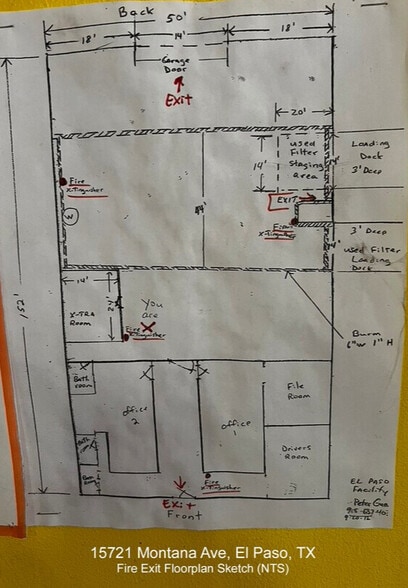 Back
50'
18'
14'
18'
Garage
Door
Exit
20'
used
Filter
staging
area
14'
Loading
Dock
3' Deep
Fire
X-tinguisher
EXIT
W
Fire
X-tinguisher
3' Deep
used Filter
Loading
Dock
152'
14'
X-TRA
Room
You
are
X
Fire
X-tinguisher
Burm
6"w 1" H
Bath
room
office
2
office
1
File
Room
Bath
room
Drivers
Room
Fire
X-tinguisher
Exit
Front
EL PASO
Facility
15721 Montana Ave, El Paso, TX
Fire Exit Floorplan Sketch (NTS)